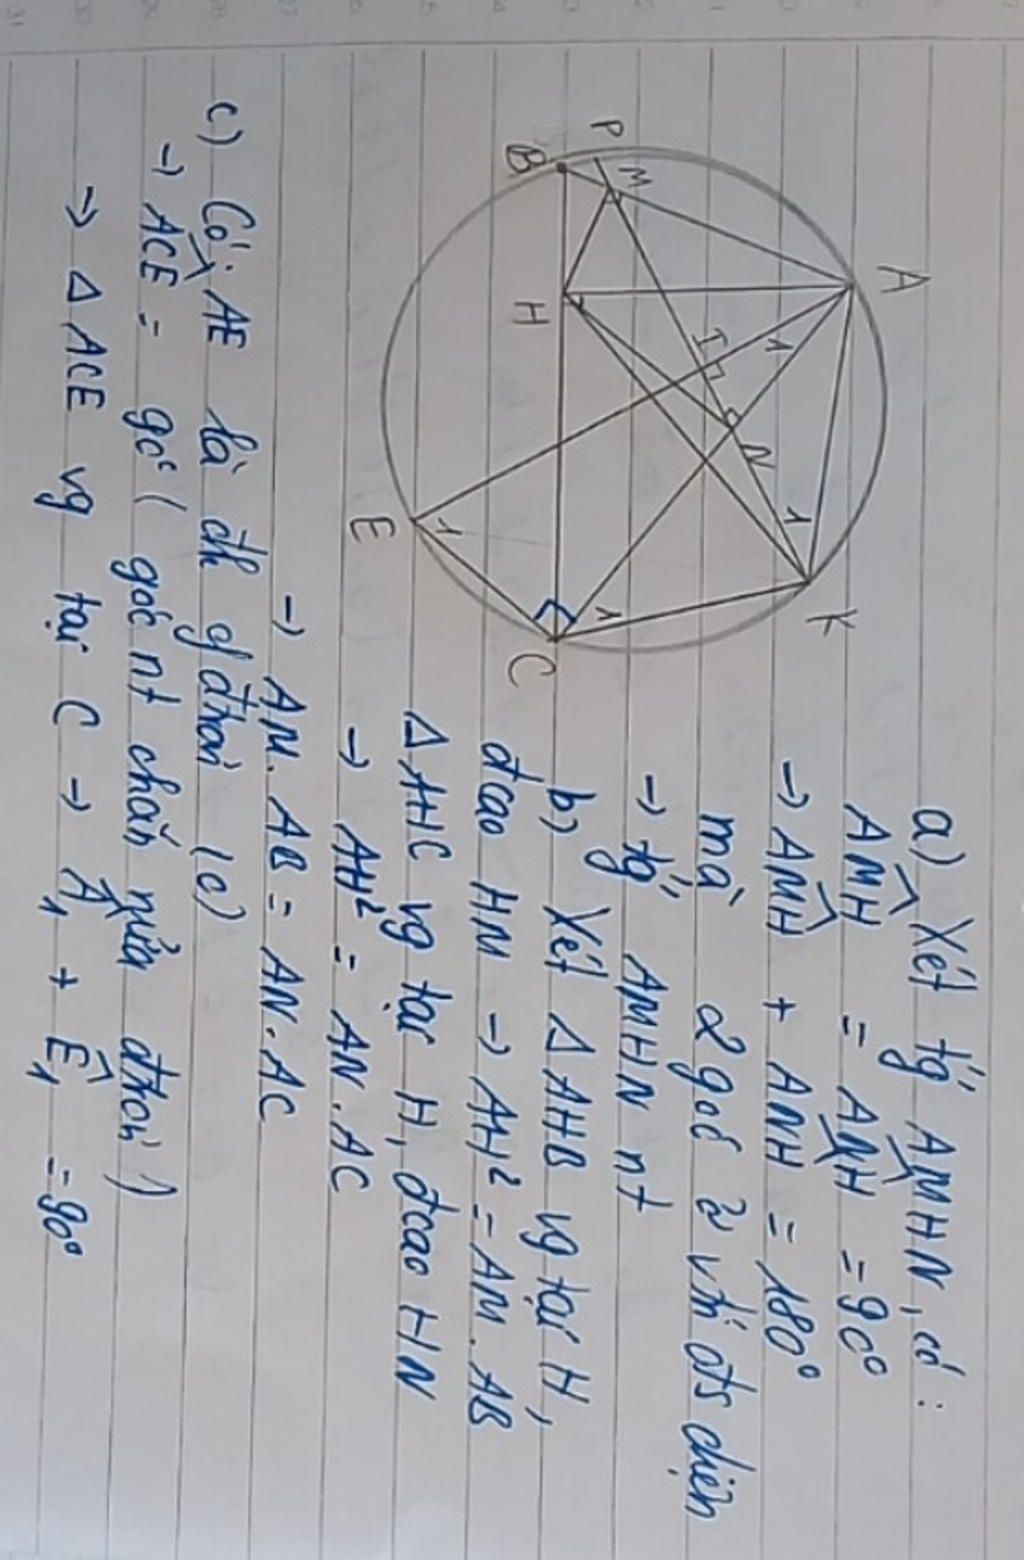 A
K
P
M
1
I
N
1
B
H
1
C
1
E
a) Xét tg" AMHN, có:
AMH = ANH = 90°
→ AMH + ANH = 180°
mà 2 góc ở vtrí đối diện
→ tg" AMHN nt
b) Xét Δ AHB vg tại H,
đcao HM → AH² = AM. AB
Δ AHC vg tại H, đcao HN
→ AH² = AN. AC
→ AM. AB = AN. AC
c) Có: AE là đk of đtròn (O)
→ ACE = 90° (góc nt chắn nửa đtròn)
→ Δ ACE vg tại C → A₁ + E₁ = 90°